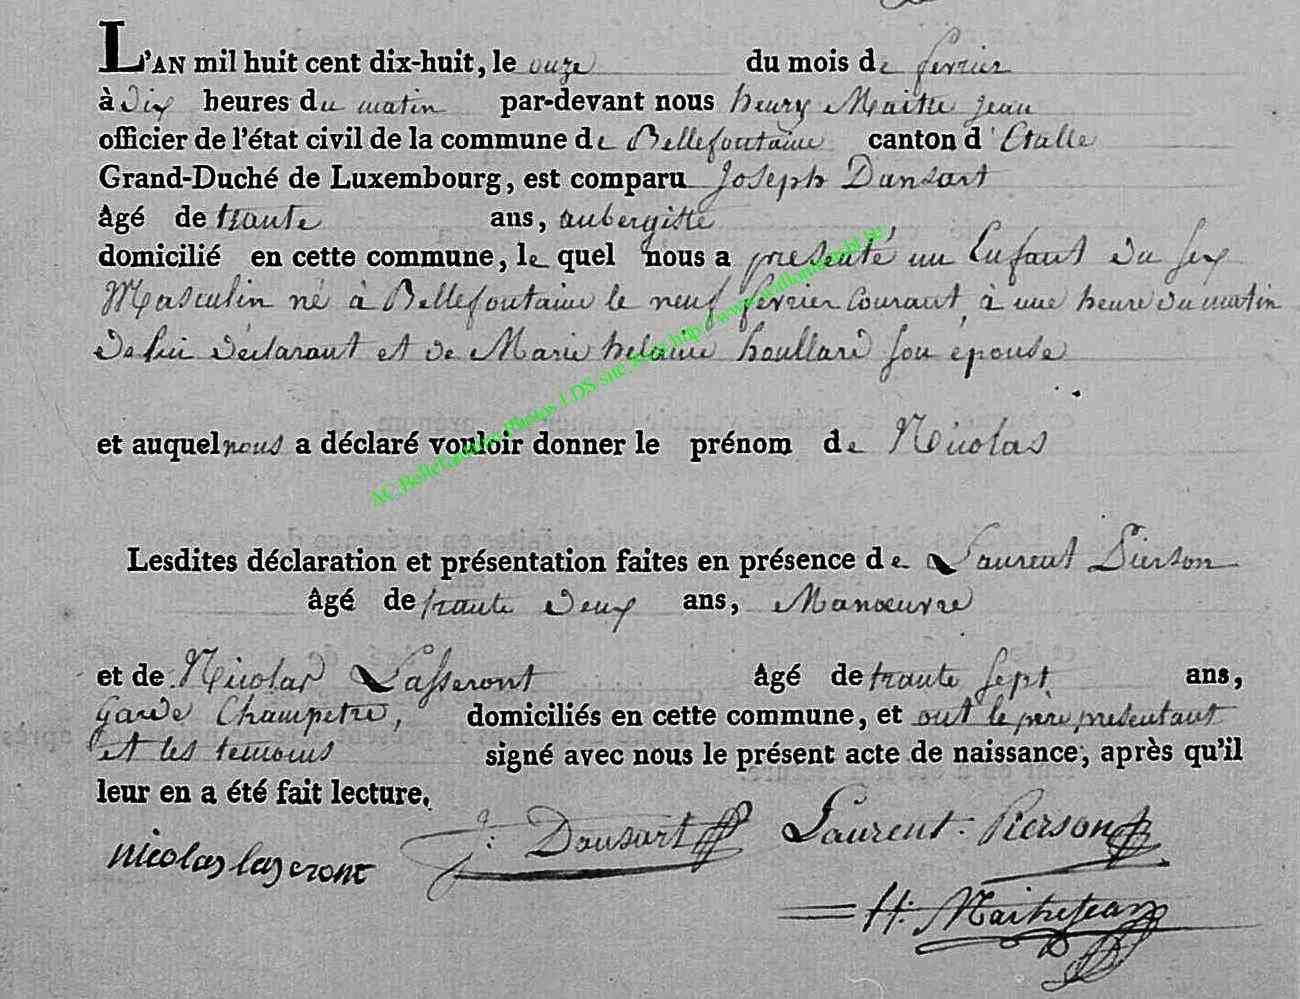 L'AN mil huit cent dix-huit, le onze du mois de fevrier
à dix heures du matin par-devant nous henry Maitre jean
officier de l'état civil de la commune de Bellefontaine canton d'Etalle
Grand-Duché de Luxembourg, est comparu Joseph Dansart
âgé de trante ans, aubergiste
domicilié en cette commune, le quel nous a presenté un Enfant du sex
Masculin né à Bellefontaine le neuf fevrier courant, à une heure du matin
de lui déclarant et de Marie helaine houllard son épouse
et auquel nous a déclaré vouloir donner le prénom de Nicolas
AC Bellefontaine Photos LDS sur site http://www.
Lesdites déclaration et présentation faites en présence de Laurent Pierson
âgé de trante deux ans, Manœuvre
et de Nicolas Lasseront âgé de trante sept ans,
Garde Champetre, domiciliés en cette commune, et ont le père présentant
et les temoins signé avec nous le présent acte de naissance, après qu'il
leur en a été fait lecture.
nicolas laseront J: Dansart Laurent: Pierson
H: Maitrejean